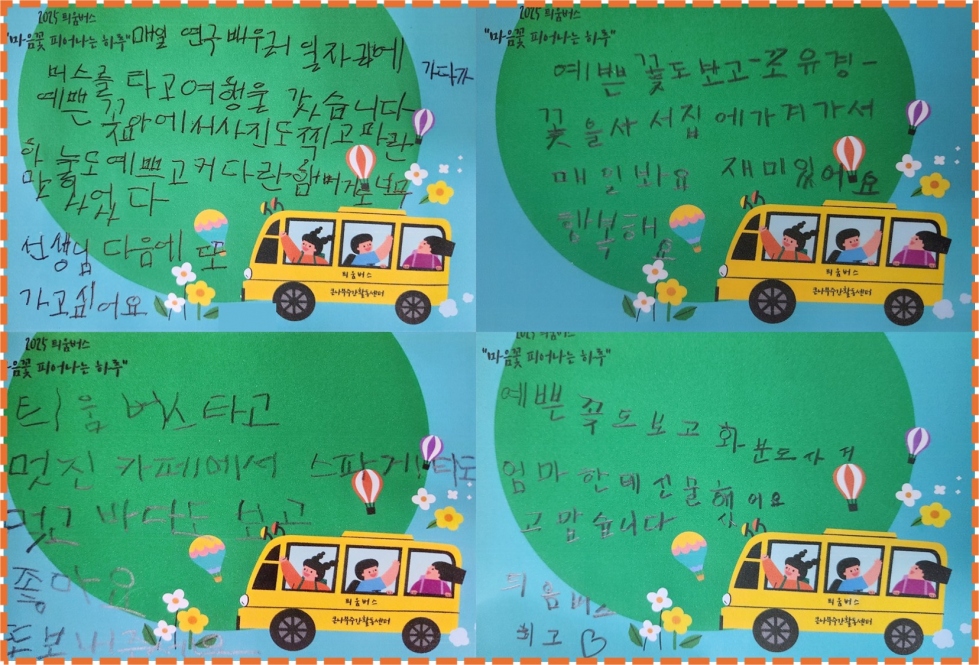 2025 틔움버스
"마음꽃 피어나는 하루"
매일 연극배우러 일자리에
가다가
버스를 타고여행을 갔습니다
예쁜 꽃
에서사진도찍고파란
하늘도예쁘고커다란햄버거도너무
맛있었다
선생님 다음에 또
가고싶어요
틔움버스
2025 틔움버스
"마음꽃 피어나는 하루"
예쁜 꽃도보고-조유경-
꽃을사서집에가져가서
매일봐요 재미있어요
행복해
요
틔움버스
2025 틔움버스
음꽃 피어나는 하루"
틔움 버스타고
멋진 카페에서 스파게티도
먹고 바다도 보고
좋아요
또보
틔움버스
2025 틔움버스
"마음꽃 피어나는 하루"
예쁜 꽃도보고 화분도사저
엄마한테선물해어요
고맙습니다
틔움버스
최고♡
틔움버스